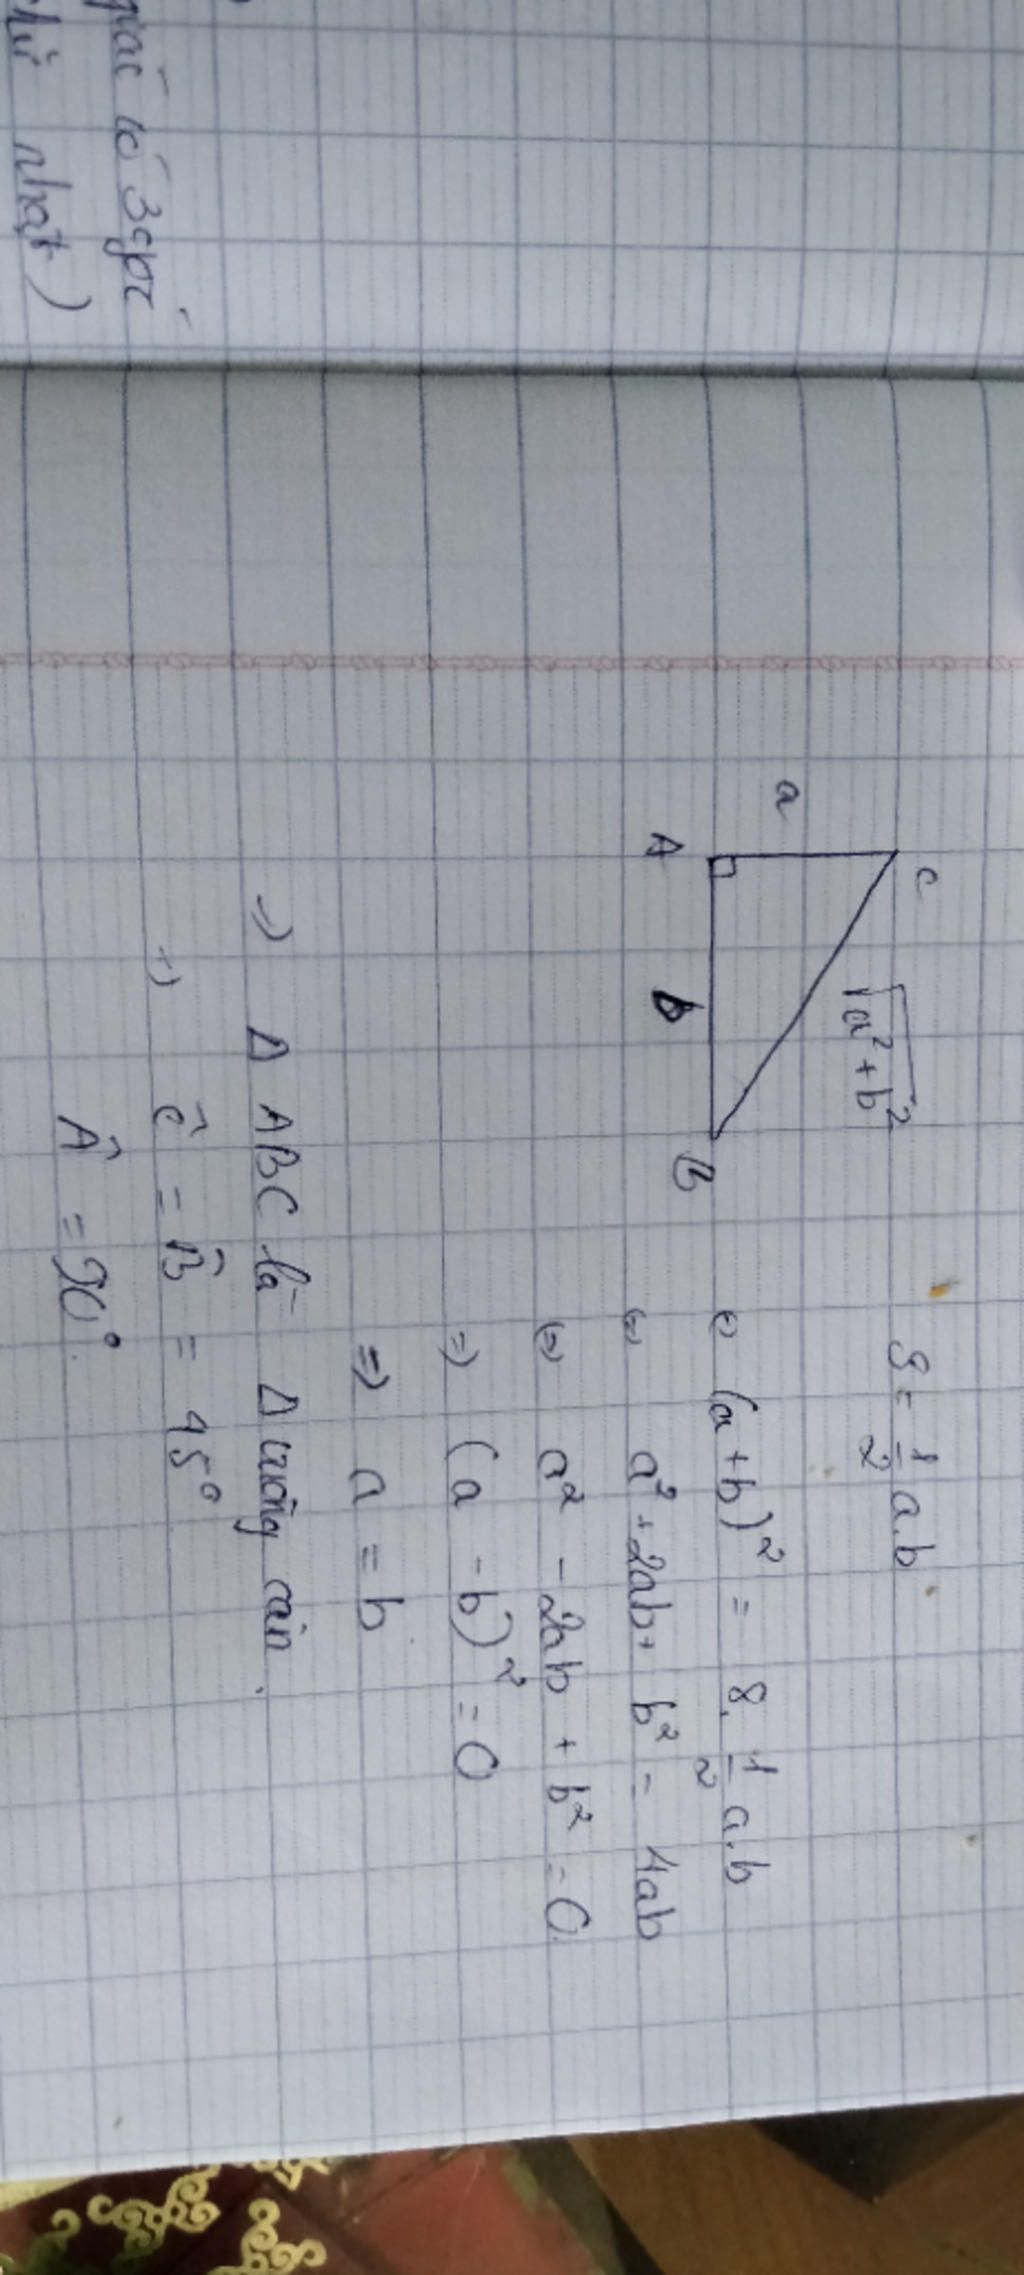 giác có 3 góc
chữ nhật)
C
a
√a²+b²
A
b
B
S = 1/2 a.b
(=) (a+b)² = 8. 1/2 a.b
(=) a² + 2ab + b² = 4ab
(=) a² - 2ab + b² = 0
=) (a - b)² = 0
=) a = b
=) Δ ABC là Δ vuông cân.
=) Ĉ = B̂ = 45°
Â = 90°.